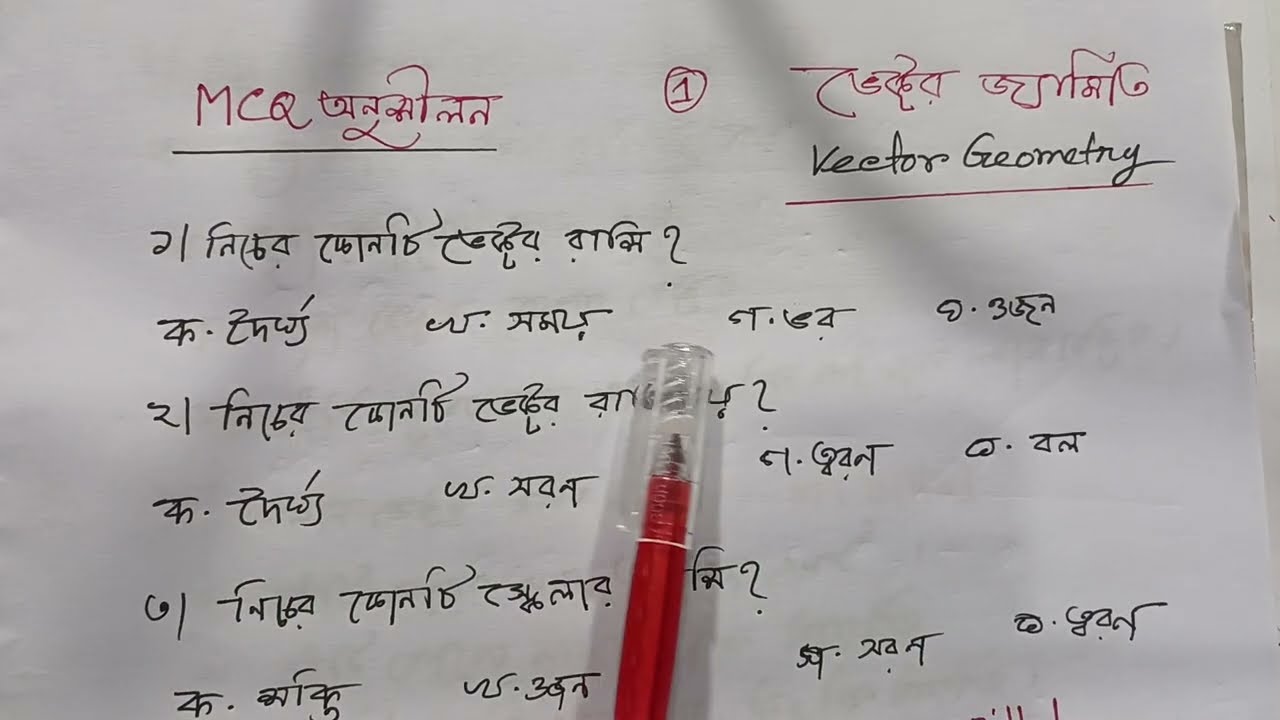 MCQ অনুশীলন ① ভেক্টর জ্যামিতি
Vector Geometry
১। নিচের কোনটি ভেক্টর রাশি ?
ক. দৈর্ঘ্য খ. সময় গ. ভর ঘ. ওজন
২। নিচের কোনটি ভেক্টর ?
ক. দৈর্ঘ্য খ. সরণ গ. ত্বরণ ঘ. বল
৩। নিচের কোনটি স্কেলার ?
ক. শক্তি খ. ওজন গ. সরণ ঘ. ত্বরণ